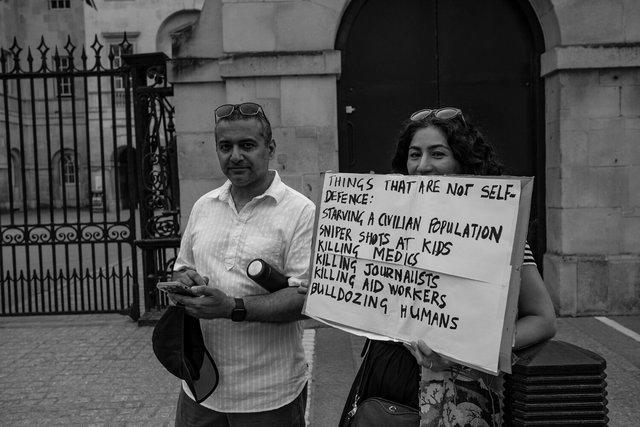 THINGS THAT ARE NOT SELF-
DEFENCE:
STARVING A CIVILIAN POPULATION
SNIPER SHOTS AT KIDS
KILLING MEDICS
KILLING JOURNALISTS
KILLING AID WORKERS
BULLDOZING HUMANS